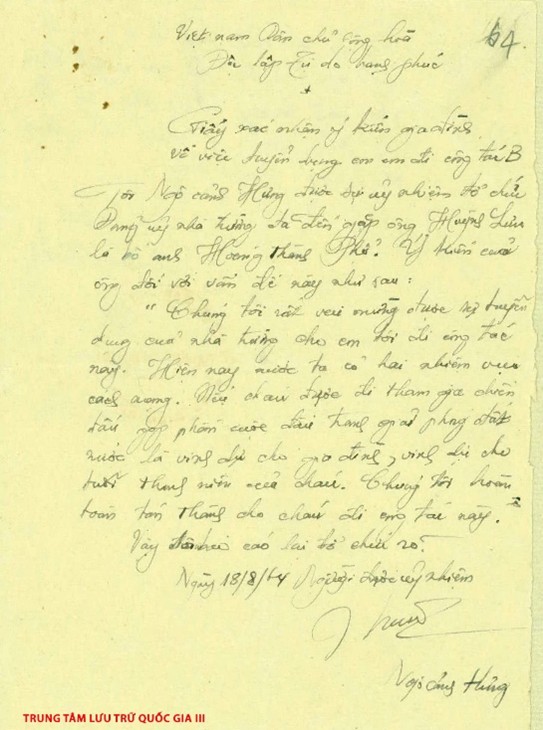 64.
Việt nam Dân chủ Cộng hoà
Độc lập Tự do hạnh phúc
Giấy xác nhận ý kiến gia đình
về việc tuyển dụng con em đi công tác B
Tôi Ngô cảnh Hưng được sự uỷ nhiệm tổ chức
Đảng uỷ nhà trường đã đến gặp ông Huỳnh Lưu
là bố anh Hoàng Phủ. Ý kiến của
ông đối với vấn đề này như sau:
"Chúng tôi rất vui mừng được sự tuyển
dụng của nhà trường cho em tôi đi công tác
này. Hiện nay nước ta có hai nhiệm vụ
cách mạng. Nếu cháu được đi tham gia chiến
đấu góp phần cuộc đấu tranh giải phóng đất
nước là vinh dự cho gia đình, vinh dự cho
tuổi thanh niên của cháu. Chúng tôi hoàn
toàn tán thành cho cháu đi công tác này."
Vậy báo cáo lại tổ chức rõ.
Ngày 18/8/64 Người được uỷ nhiệm
Ngô cảnh Hưng
TRUNG TÂM LƯU TRỮ QUỐC GIA III